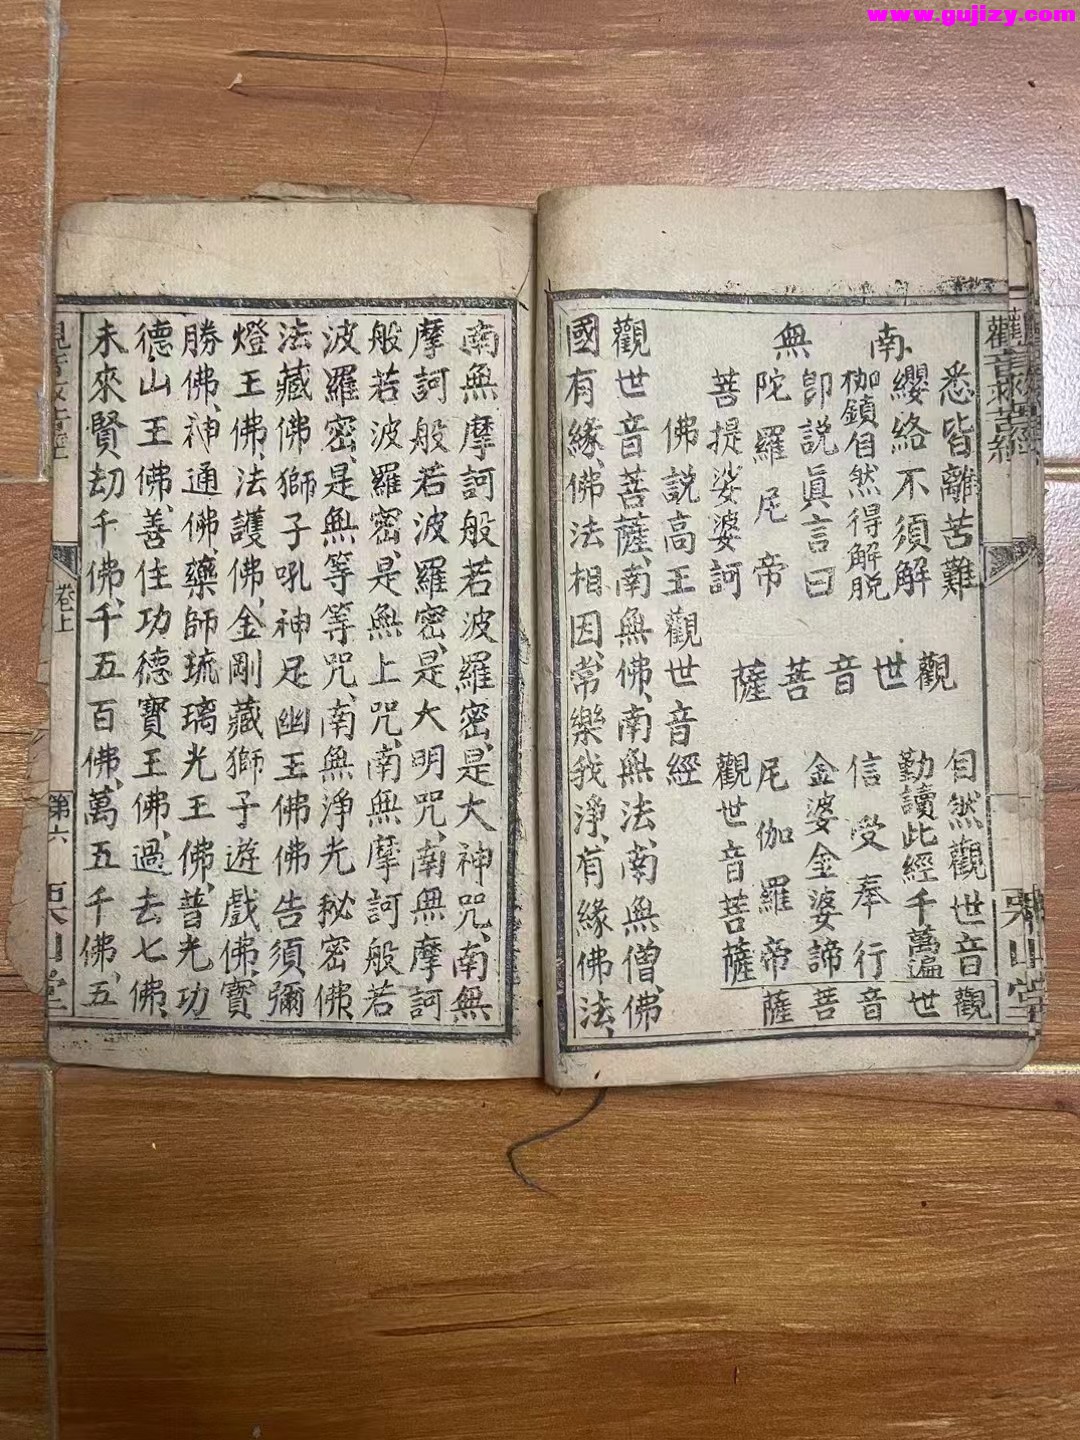 觀音救苦經
山堂
南無
悉皆離苦難
纓絡不須解
枷鎖自然得解脫
即說眞言曰
陀羅尼帝
菩提婆婆訶
觀世音菩薩
自然觀世音
勤讀此經千萬遍
信受奉行
金婆金婆諦
尼伽羅帝
觀世音菩薩
觀世音菩薩
佛說高王觀世音經
觀世音菩薩、南無佛、南無法、南無僧、佛
國有緣、佛法相因、常樂我淨、有緣佛法、
南無摩訶般若波羅密、是大神咒、南無
摩訶般若波羅密、是大明咒、南無摩訶
般若波羅密、是無上咒、南無摩訶般若
波羅密、是無等等咒、南無淨光秘密佛、
法藏佛獅子吼神足幽王佛佛告須彌
燈王佛、法護佛、金剛藏獅子遊戲佛、寶
勝佛、神通佛、藥師琉璃光王佛、普光功
德山王佛、善住功德寶王佛、過去七佛、
未來賢劫千佛、千五百佛、萬五千佛、五
觀音救苦經
卷上
第六
山堂
www.gujizy.com